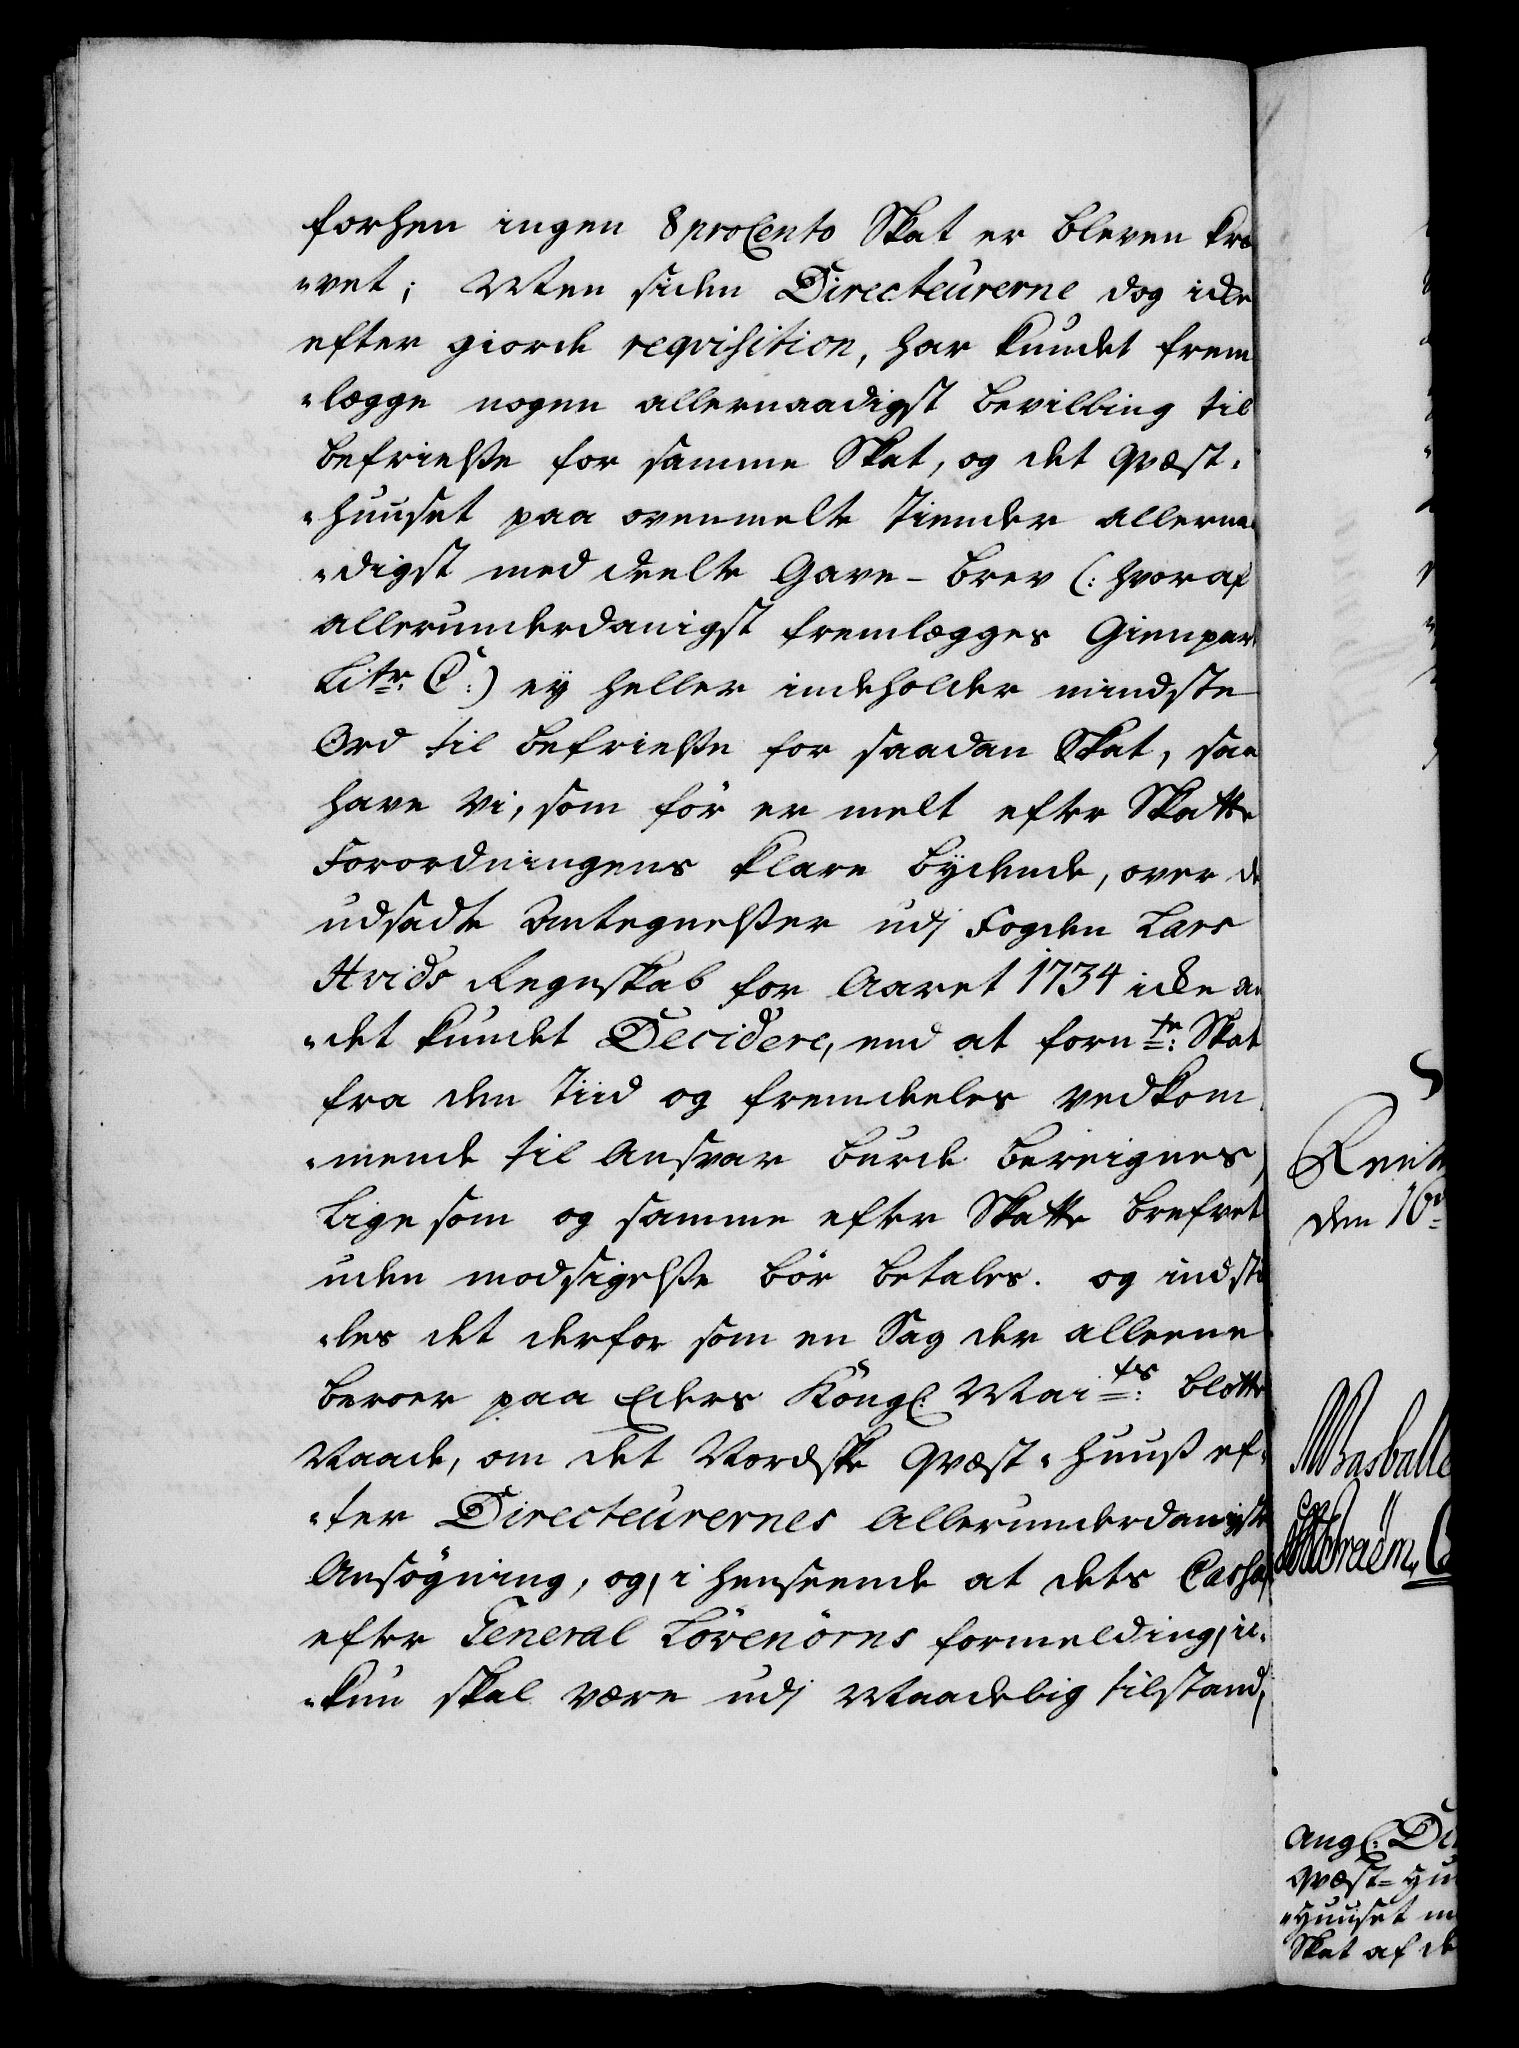 forhen ingen 8 proCento Skat er bleven kræ
"vet; Men siden Directeurerne dog icke
efter giorde reqvisition, har kundet frem
"lægge nogen allernaadigst bevilling til
befrielse for samme Skat, og det Qvæst-
"huuset paa ovenmelte Tiender allernaa
"digst meddeelte Gave-brev (: hvoraf
allerunderdanigst fremlægges Gienpart
Litr: C:) ey heller indeholder mindste
Ord til befrielse for saadan Skat, saa
have vi, som før er melt efter Skatte
Forordningens klare bydende, over de
udsadte Antegnelser udj Fogden Lars
Hvids Regnskab for Aaret 1734 icke an
"det kundet Decidere, end at fornte: Skat
fra den Tiid og fremdeles vedkom
"mende til Ansvar burde bereignes,
ligesom og samme efter Skatte brefvet
uden modsigelse bør betales. og indstil
"les det derfor som en Sag der alleene
beroer paa Eders Kongl: Maits: blotte
Naade, om det Nordske Qvæst-Huus ef-
"ter Directeurernes Allerunderdanigste
Ansøgning, og, i henseende at dets Cassa,
efter General Lövenörns formelding, ic-
"kun skal være udj Maadelig tilstand,
Rent
den 16
Basballe
Angl: Di
Qvæst-Hu
"Huuset m
Skat af de